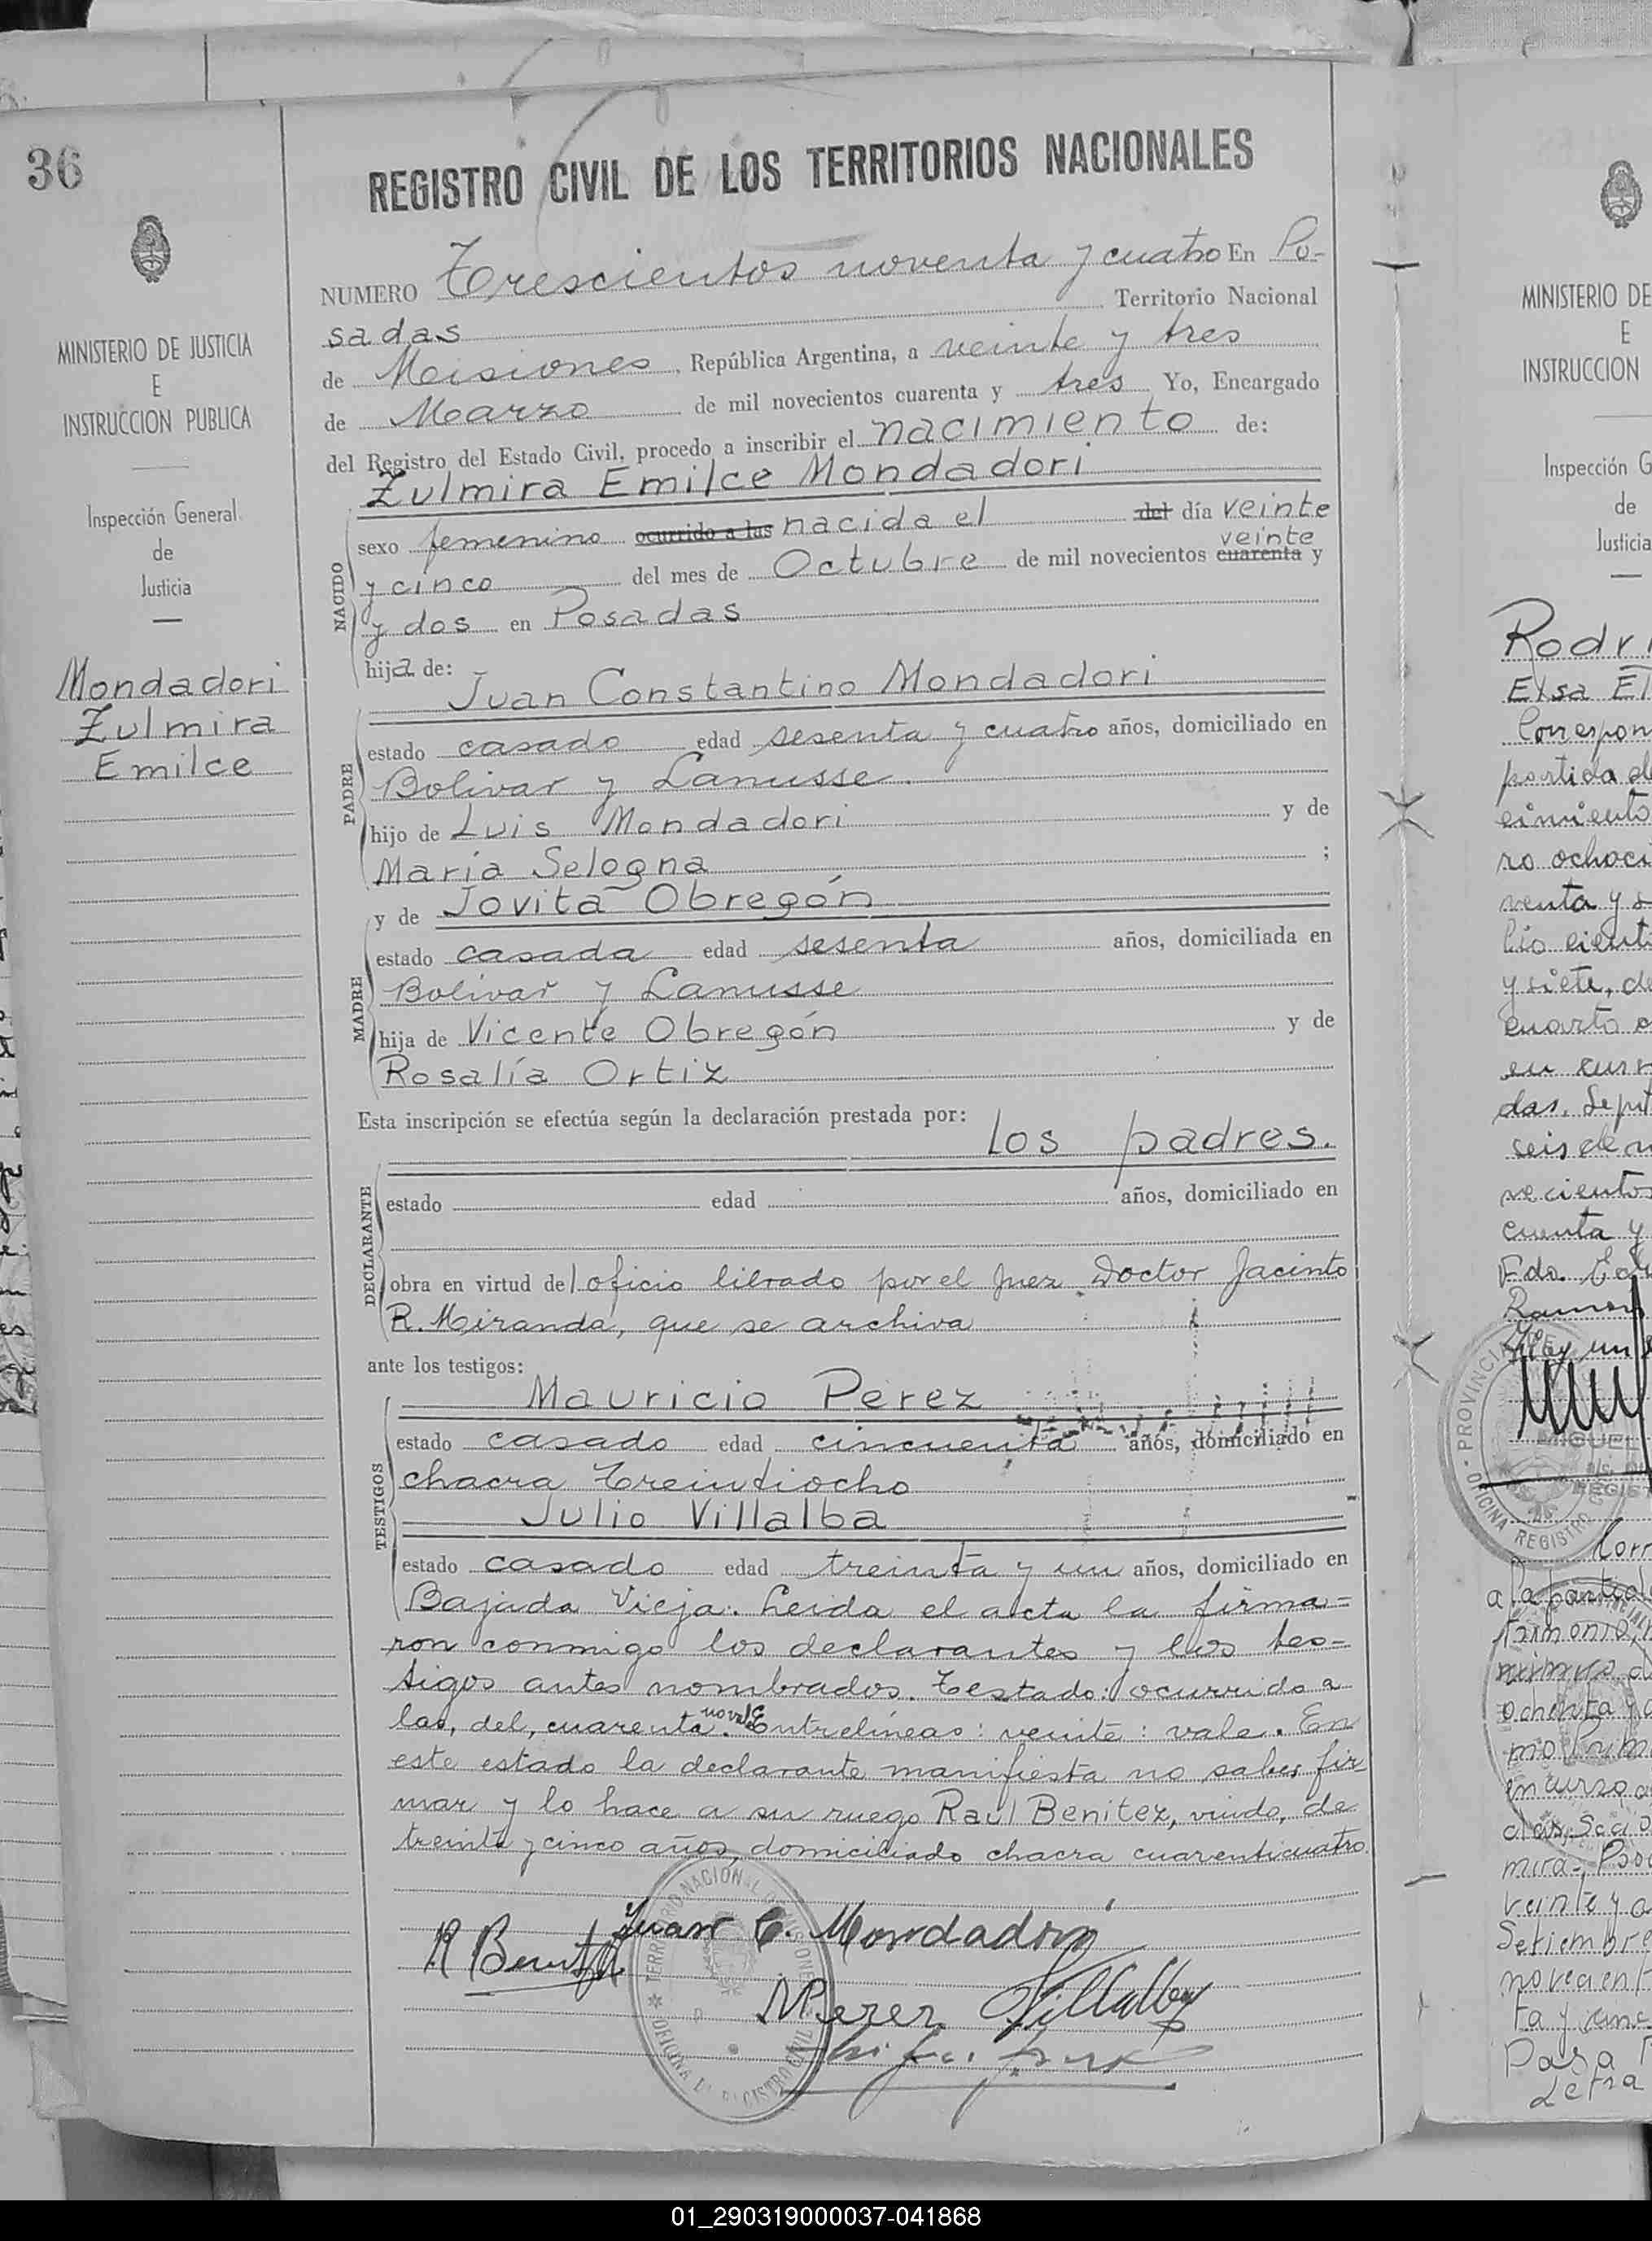 36
MINISTERIO DE JUSTICIA
E
INSTRUCCION PUBLICA
Inspección General
de
Justicia
Mondadori
Zulmira
Emilce
REGISTRO CIVIL DE LOS TERRITORIOS NACIONALES
NUMERO Trescientos noventa y cuatro En Po-
sadas Territorio Nacional
de Misiones, República Argentina, a veinte y tres
de Marzo de mil novecientos cuarenta y tres Yo, Encargado
del Registro del Estado Civil, procedo a inscribir el nacimiento de:
Zulmira Emilce Mondadori
NACIDO
sexo femenino ocurrido a las nacida el del día veinte
veinte
y cinco del mes de Octubre de mil novecientos cuarenta y
y dos en Posadas
hija de:
Juan Constantino Mondadori
PADRE
estado casado edad sesenta y cuatro años, domiciliado en
Bolivar y Lanusse.
hijo de Luis Mondadori y de
María Selogna ;
y de Jovita Obregón
MADRE
estado casada edad sesenta años, domiciliada en
Bolivar y Lanusse
hija de Vicente Obregón y de
Rosalía Ortiz
Esta inscripción se efectúa según la declaración prestada por:
los padres.
DECLARANTE
estado edad años, domiciliado en
obra en virtud del oficio librado por el Juez Doctor Jacinto
R. Miranda, que se archiva
ante los testigos:
Mauricio Perez
TESTIGOS
estado casado edad cincuenta años, domiciliado en
chacra treintiocho
Julio Villalba
estado casado edad treinta y un años, domiciliado en
Bajada Vieja. Leida el acta la firma=
ron conmigo los declarantes y los tes=
tigos antes nombrados. Testado: ocurrido a
las, del, cuarenta: no vale Entrelíneas: veinte: vale. En
este estado la declarante manifiesta no saber fir-
mar y lo hace a su ruego Raúl Benitez, viudo, de
treinta y cinco años, domiciliado chacra cuarenticuatro
Juan C. Mondadori
R Benitez
MPerez JVillalba
TERRITORIO NACIONAL DE MISIONES
OFICINA DEL REGISTRO CIVIL
MINISTERIO DE
E
INSTRUCCION
Inspección G
de
Justicia
Rodr
Elsa El
Correspon
partida de
cimiento
ro ochoci
venta y s
y siete, de
cuarto
en curs
das, Sept
seis de
cuenta y
PROVINCIA
MIGUEL
REGIST
OFICINA REGISTRO
Corr
a la partida
trimonio
ochenta y
en curso
mira-
veinte y
Setiembre
novecient
ta y cinc
Pasa
Letra
01_290319000037-041868